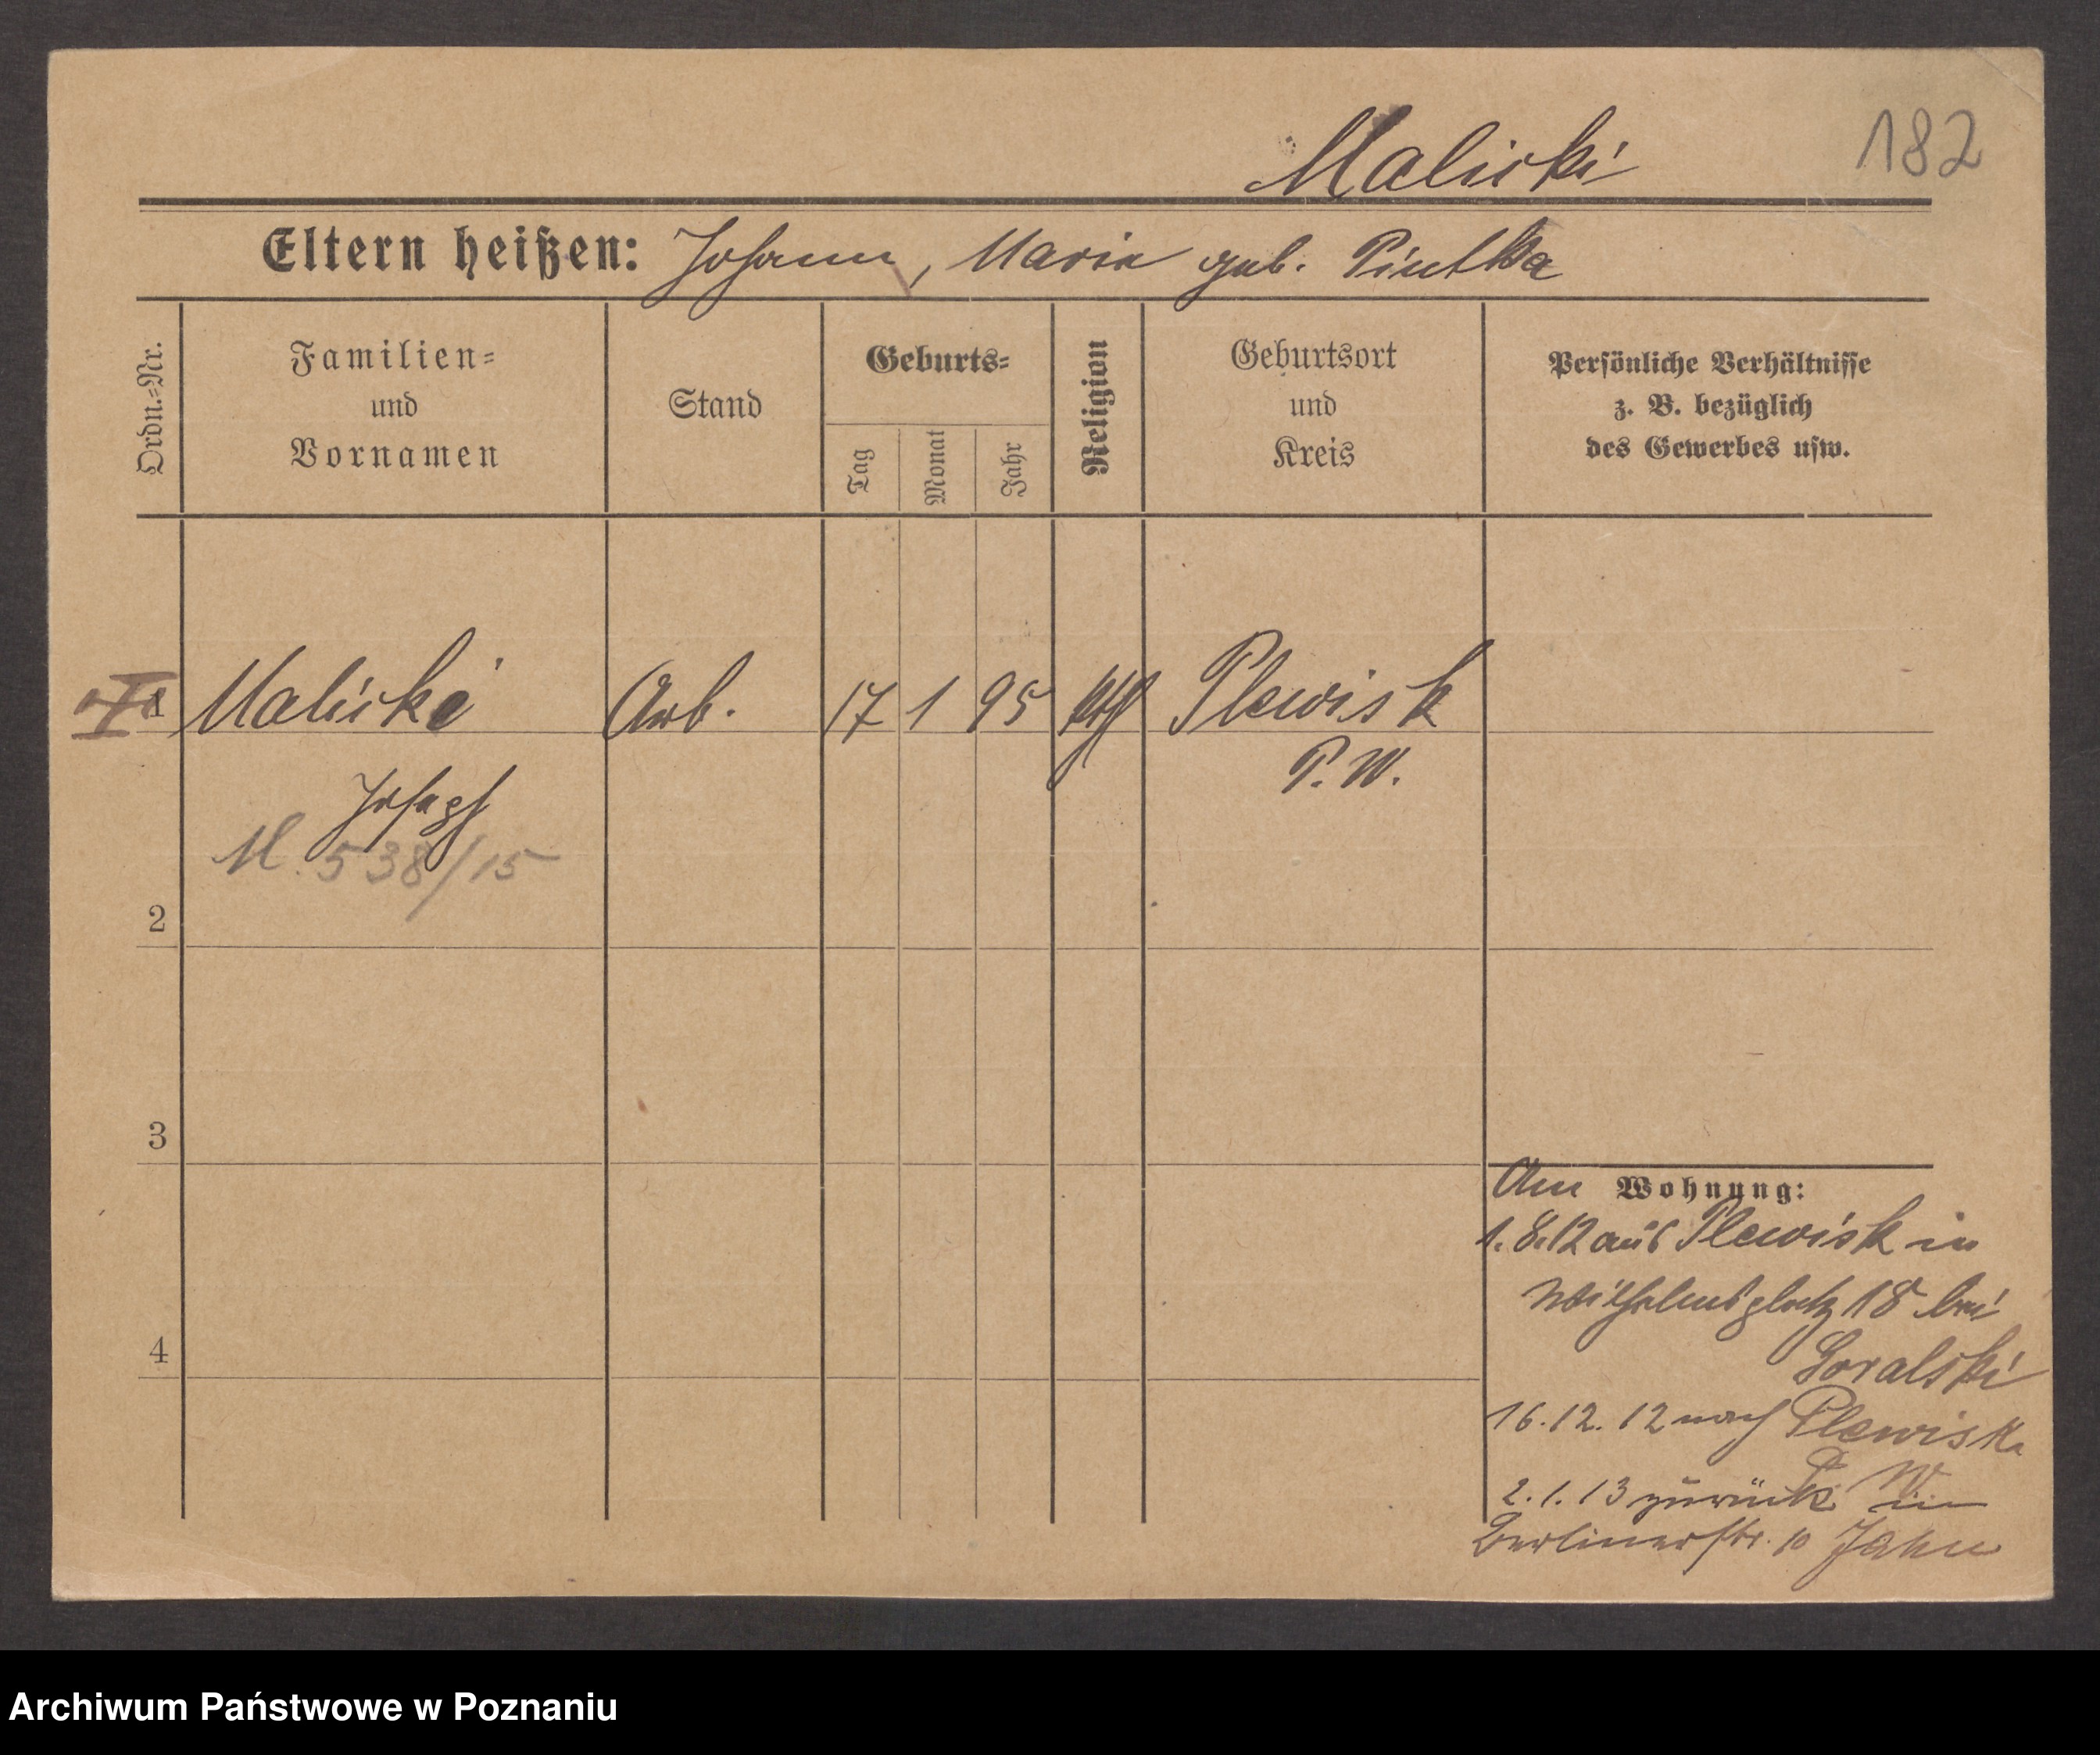 Malicki
182
Eltern heißen: Johann, Maria geb. Pientka
Ordn.=Nr.
Familien=
und
Vornamen
Stand
Geburts=
Tag
Monat
Jahr
Religion
Geburtsort
und
Kreis
Persönliche Verhältnisse
z. B. bezüglich
des Gewerbes usw.
1 Malicki Arb. 17 1 95 kth Plewisk
P. W.
Joseph
M. 538/15
2
3
4
Am Wohnung:
1.8.12 aus Plewisk in
Wilhelmsplatz 18 bei
Goralski
16.12.12 nach Plewisk
P. W.
2.1.13 zurück in
Berlinerstr. 10
Archiwum Państwowe w Poznaniu